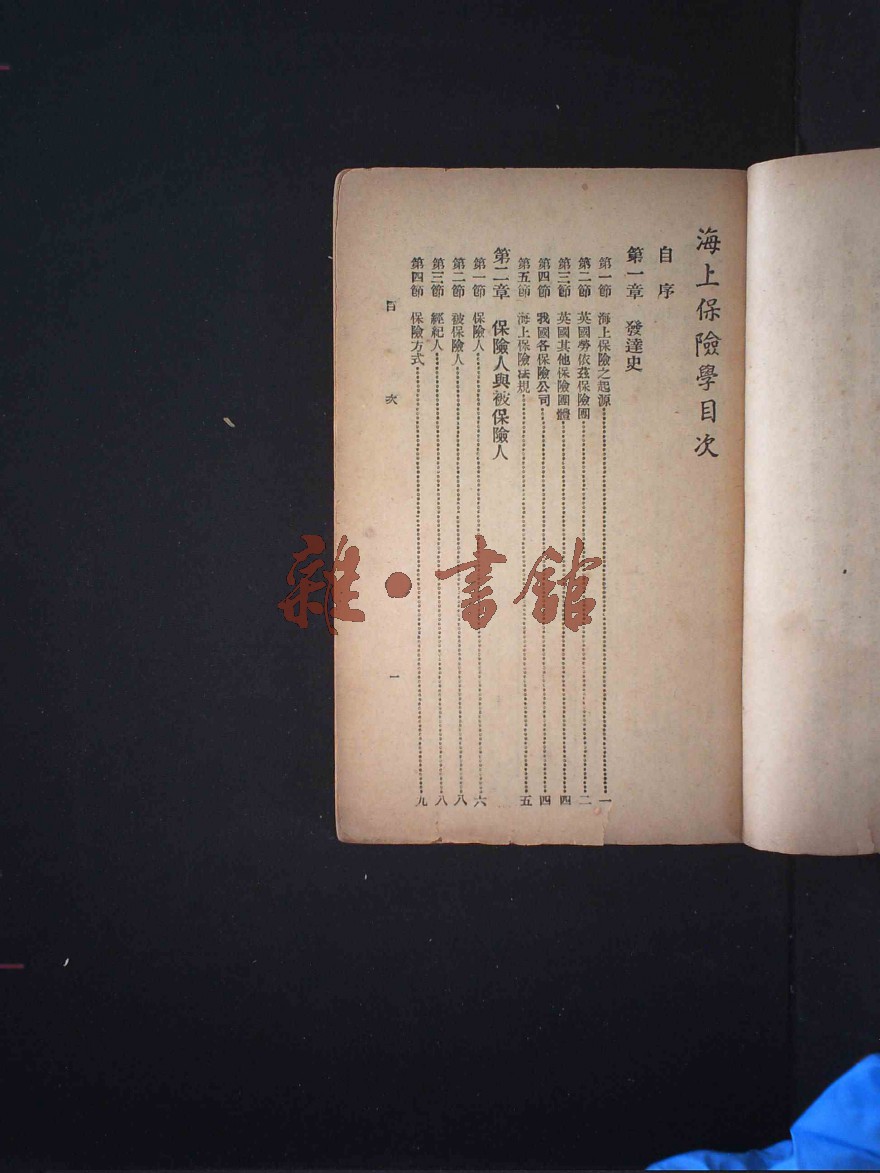 海上保險學目次
自序
第一章 發達史
第一節 海上保險之起源 一
第二節 英國勞依茲保險團 二
第三節 英國其他保險團體 四
第四節 我國各保險公司 四
第五節 海上保險法規 五
第二章 保險人與被保險人
第一節 保險人 六
第二節 被保險人 八
第三節 經紀人 八
第四節 保險方式 九
目次 一
雜·書館